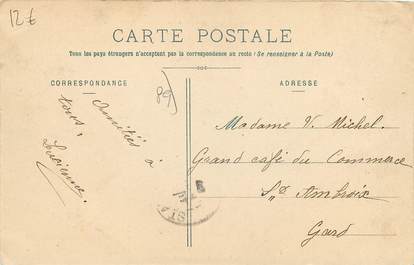 12€
CARTE POSTALE
Tous les pays étrangers n'acceptent pas la correspondance au recto (Se renseigner à la Poste)
CORRESPONDANCE
ADRESSE
(89)
Amitiés à
tous,
Lucienne.
Madame V. Michel.
Grand café du Commerce
St Ambroix
Gard